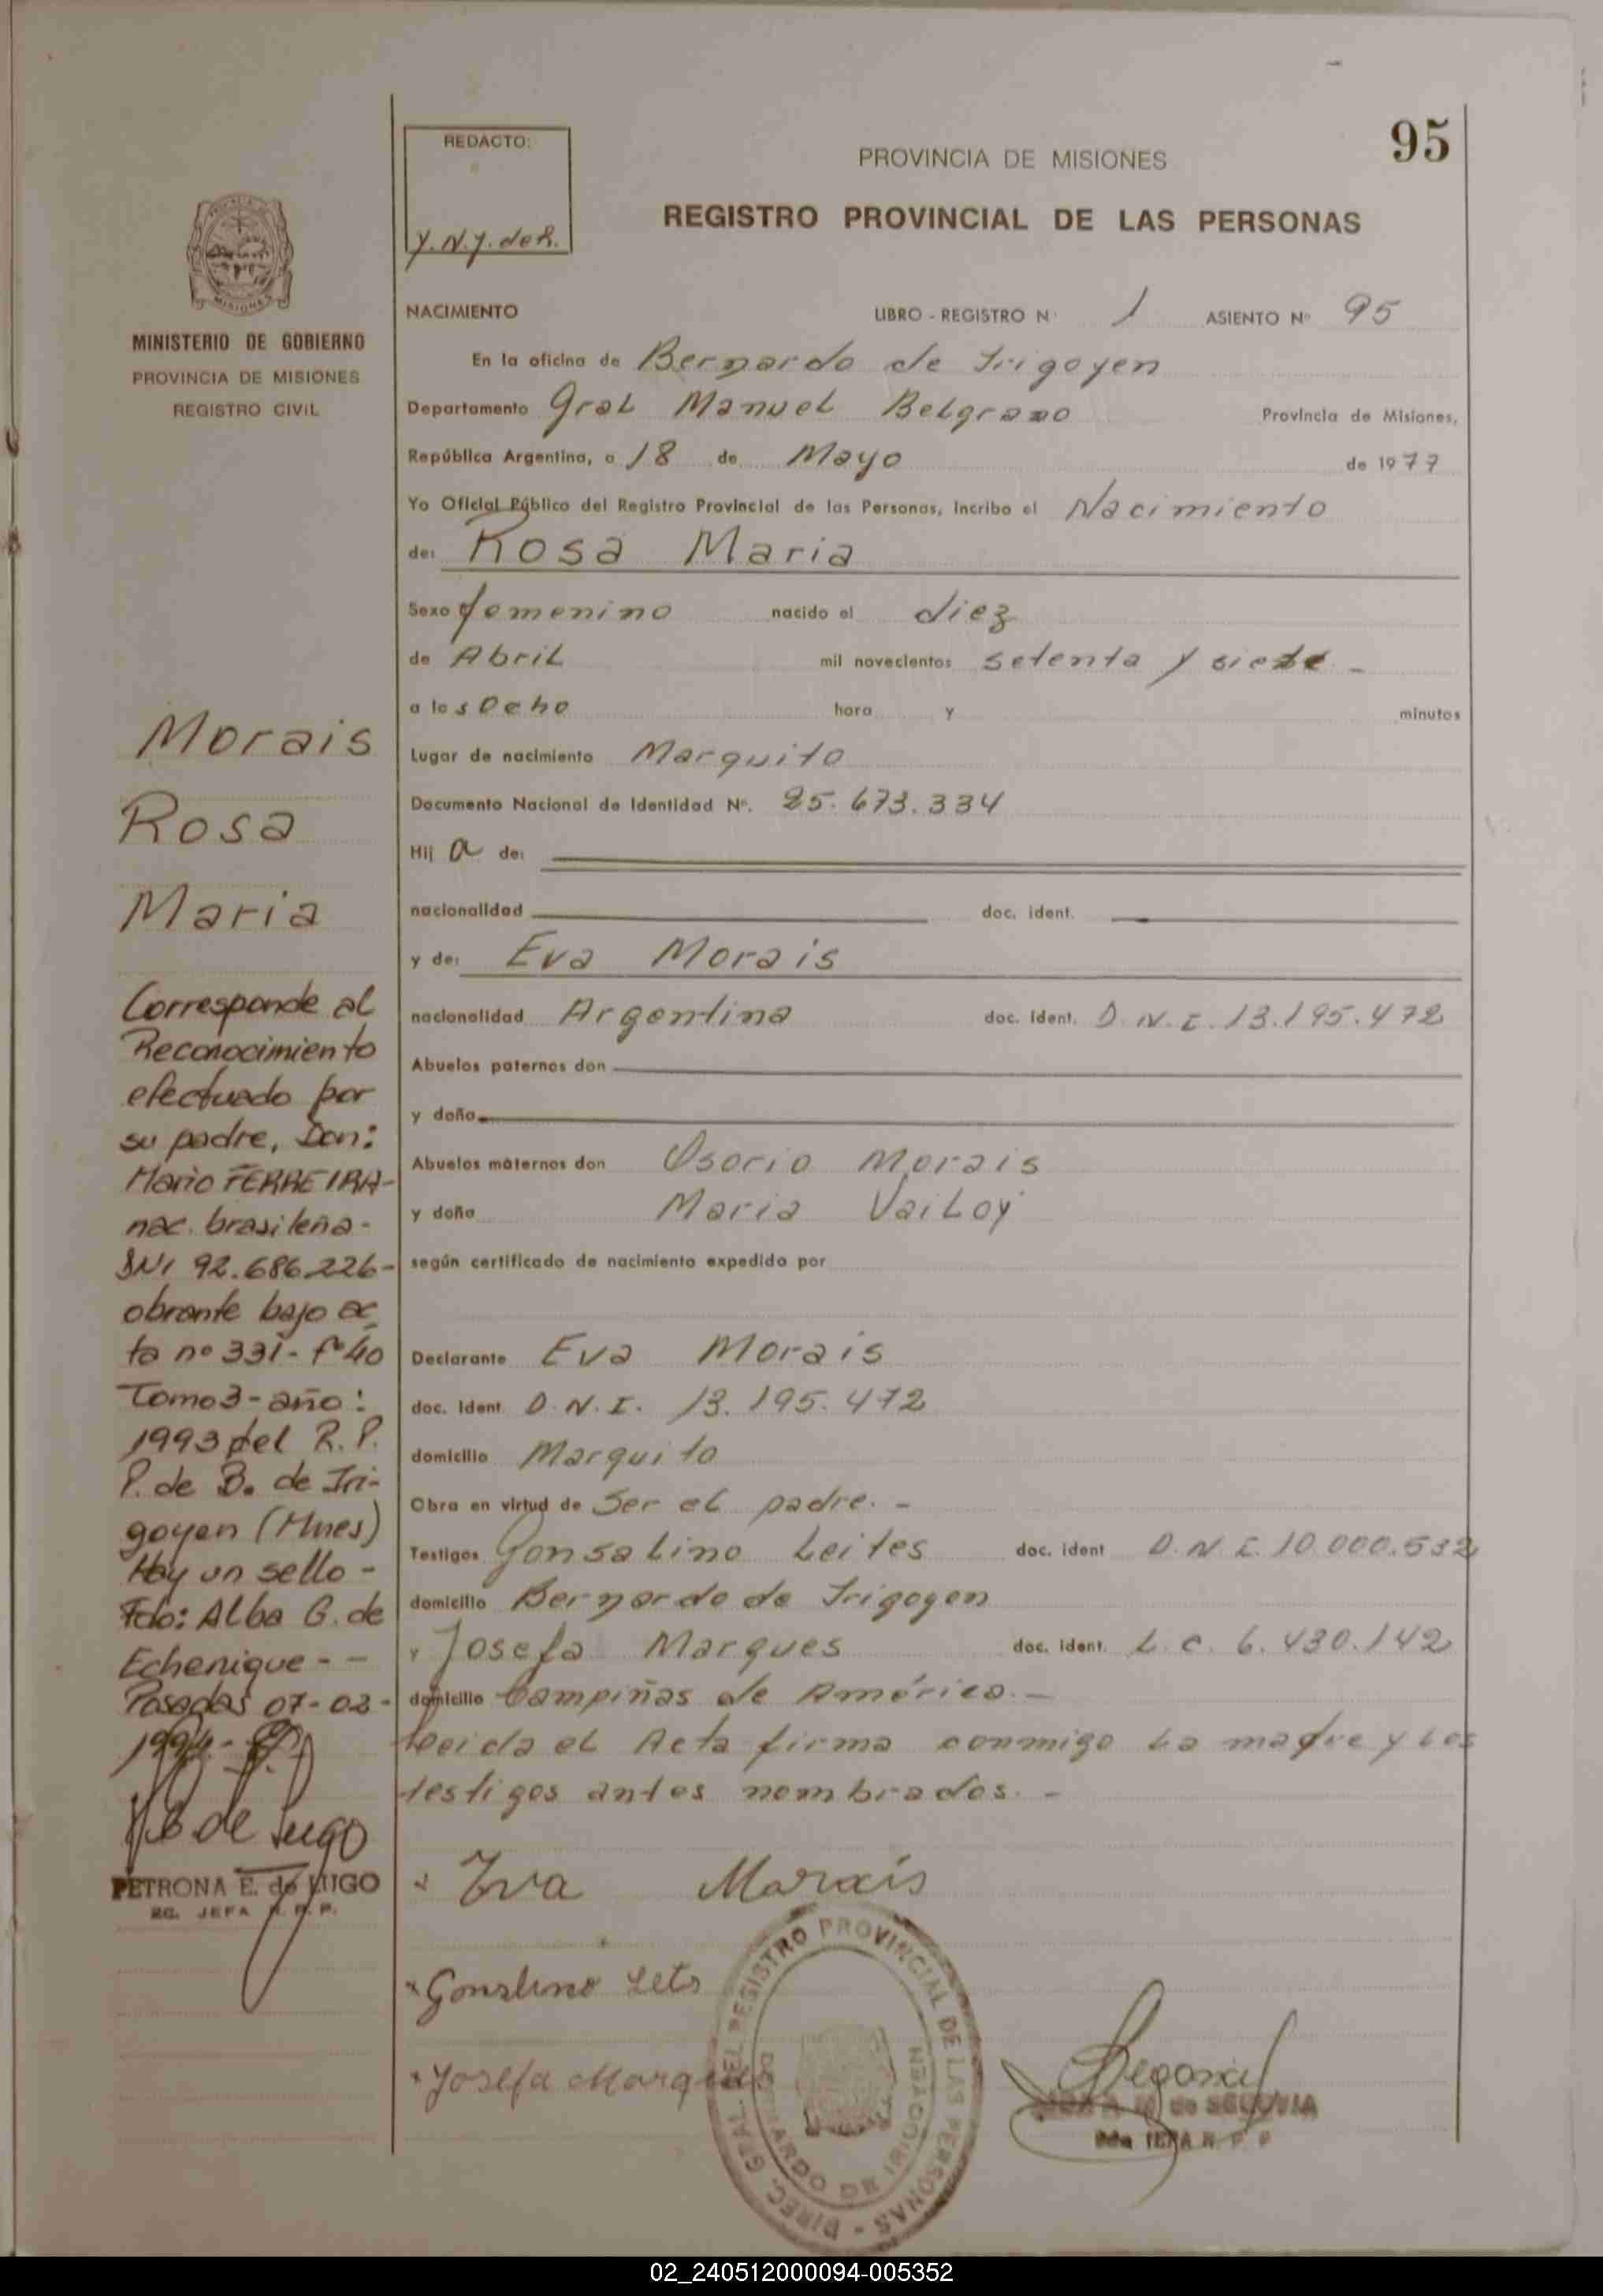 95
REDACTO:
PROVINCIA DE MISIONES
REGISTRO PROVINCIAL DE LAS PERSONAS
MINISTERIO DE GOBIERNO
PROVINCIA DE MISIONES
REGISTRO CIVIL
NACIMIENTO LIBRO - REGISTRO N° 1 ASIENTO N° 95
En la oficina de Bernardo de Irigoyen
Departamento Gral Manuel Belgrano Provincia de Misiones,
República Argentina, a 18 de Mayo de 1977
Yo Oficial Público del Registro Provincial de las Personas, incribo el Nacimiento
de: Rosa Maria
Sexo femenino nacido el diez
de Abril mil novecientos setenta y siete -
a las Ocho hora y minutos
Lugar de nacimiento Marquito
Documento Nacional de Identidad N°. 25.673.334
Hij a de:
nacionalidad doc. ident.
y de: Eva Morais
nacionalidad Argentina doc. ident. D.N.I. 13.195.472
Abuelos paternos don
y doña
Abuelos maternos don Osorio Morais
y doña Maria
según certificado de nacimiento expedido por
Declarante Eva Morais
doc. ident D.N.I. 13.195.472
domicilio Marquito
Obra en virtud de Ser el padre. -
Testigos Gonsalino Leites doc. ident D.N.I. 10.000.532
domicilio Bernardo de Irigoyen
y Josefa Marques doc. ident. L.C. 6.430.142
domicilio Campiñas de América. -
Leida el Acta firma conmigo la madre y los
testigos antes nombrados. -
Eva Morais
Josefa Marques
Morais
Rosa
Maria
Corresponde al
Reconocimiento
efectuado por
su padre, Don:
Mario FERREIRA-
nac. brasileña-
DNI 92.686.226-
obrante bajo ac
ta n° 331- f°40
Tomo 3 - año:
1993 del R.P.
P. de B. de Iri-
goyen (Mnes)
Hay un sello -
Fdo: Alba G. de
Echenique - -
Posadas 07-02-
1994-
de Lugo
PETRONA E. de LUGO
JEFA R. P. P.
DIREC. GRAL. DEL REGISTRO PROVINCIAL DE LAS PERSONAS -
BERNARDO DE IRIGOYEN
de SEGOVIA
JEFA R. P. P.
02_240512000094-005352